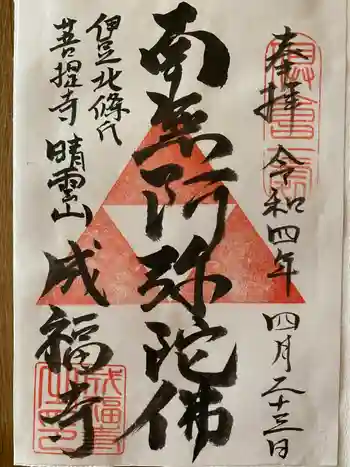 奉拝 令和四年 四月二十三日
南無阿弥陀佛
伊豆北條氏
菩提寺 晴雲山
成福寺